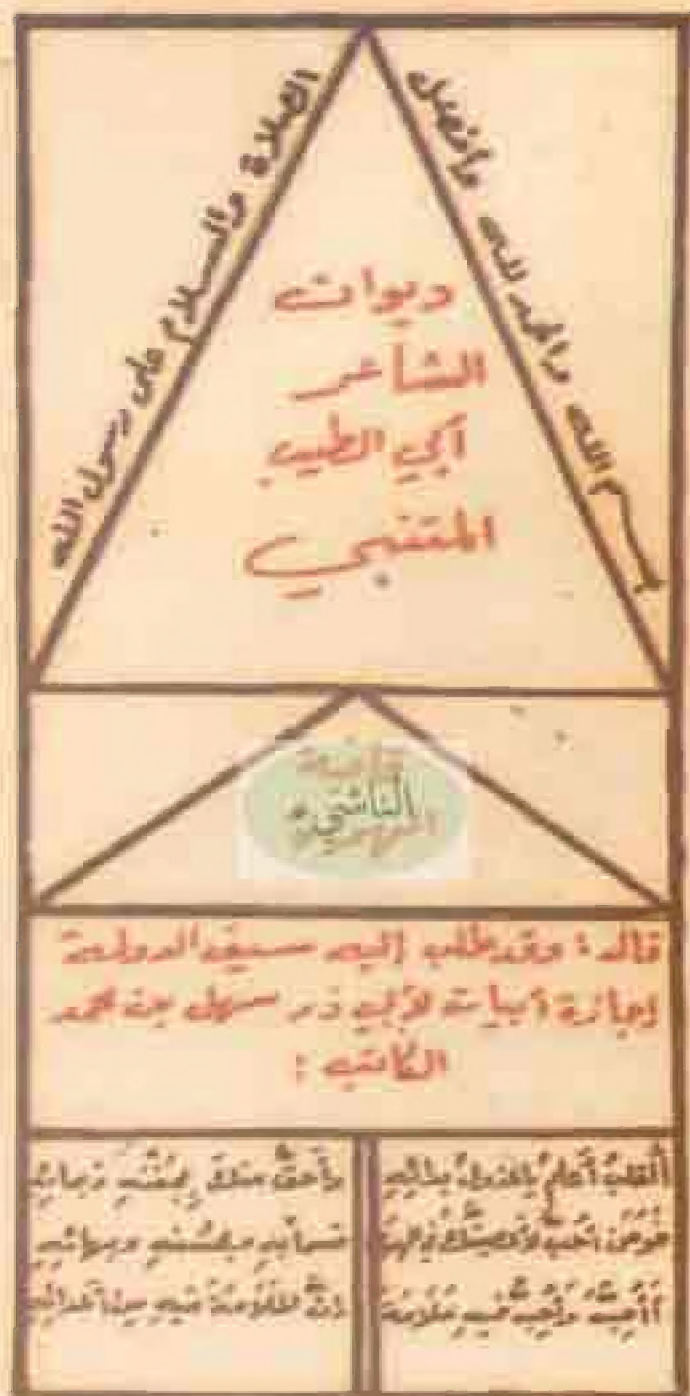 بسم الله والحمد لله وأفضل
الصلاة والسلام على رسول الله
ديوان
الشاعر
أبي الطيب
المتنبي
الناشري
قال: وقد طلب إليه سيف الدولة
إجازة أبيات لأبي ذر سهل بن محمد
الكاتب:
ألقلبُ أعلمُ يا عذولُ بدائِهِ وأحقُّ منكَ بجفنِهِ وبمائِهِ
فومن أحبُّ لأعصينَّكَ في الهوى قسماً بهِ وبحسنِهِ وبهائِهِ
أأحبُّهُ وأحبُّ فيهِ ملامةً إنَّ الملامةَ فيهِ من أعدائِهِ